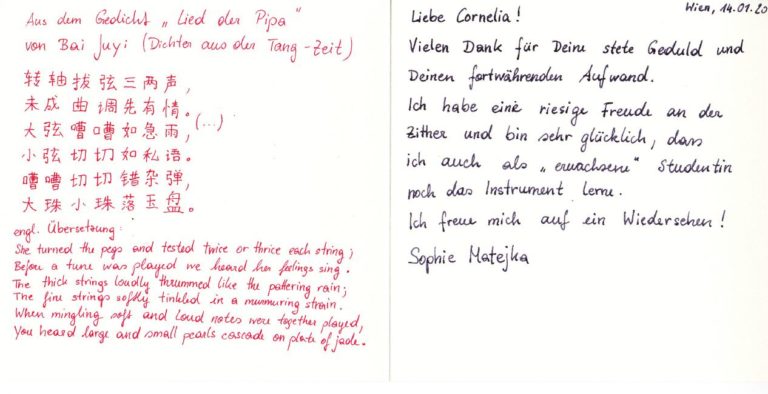 Aus dem Gedicht „Lied der Pipa"
von Bai Juyi (Dichter aus der Tang-Zeit)
转轴拨弦三两声,
未成曲调先有情。
大弦嘈嘈如急雨, (...)
小弦切切如私语。
嘈嘈切切错杂弹,
大珠小珠落玉盘。
engl. Übersetzung:
She turned the pegs and tested twice or thrice each string;
Before a tune was played we heard her feelings sing.
The thick strings loudly thrummed like the pattering rain;
The fine strings softly tinkled in a murmuring strain.
When mingling soft and loud notes were together played,
You heard large and small pearls cascade on plate of jade.
Wien, 14.01.20
Liebe Cornelia!
Vielen Dank für Deine stete Geduld und
Deinen fortwährenden Aufwand.
Ich habe eine riesige Freude an der
Zither und bin sehr glücklich, dass
ich auch als „erwachsene" Studentin
noch das Instrument lerne.
Ich freue mich auf ein Wiedersehen!
Sophie Matejka